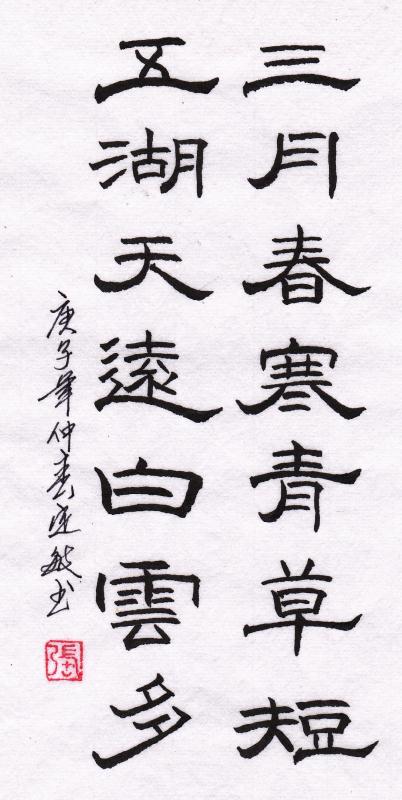 三月春寒青草短
五湖天遠白雲多
庚子年仲春定敏书
張